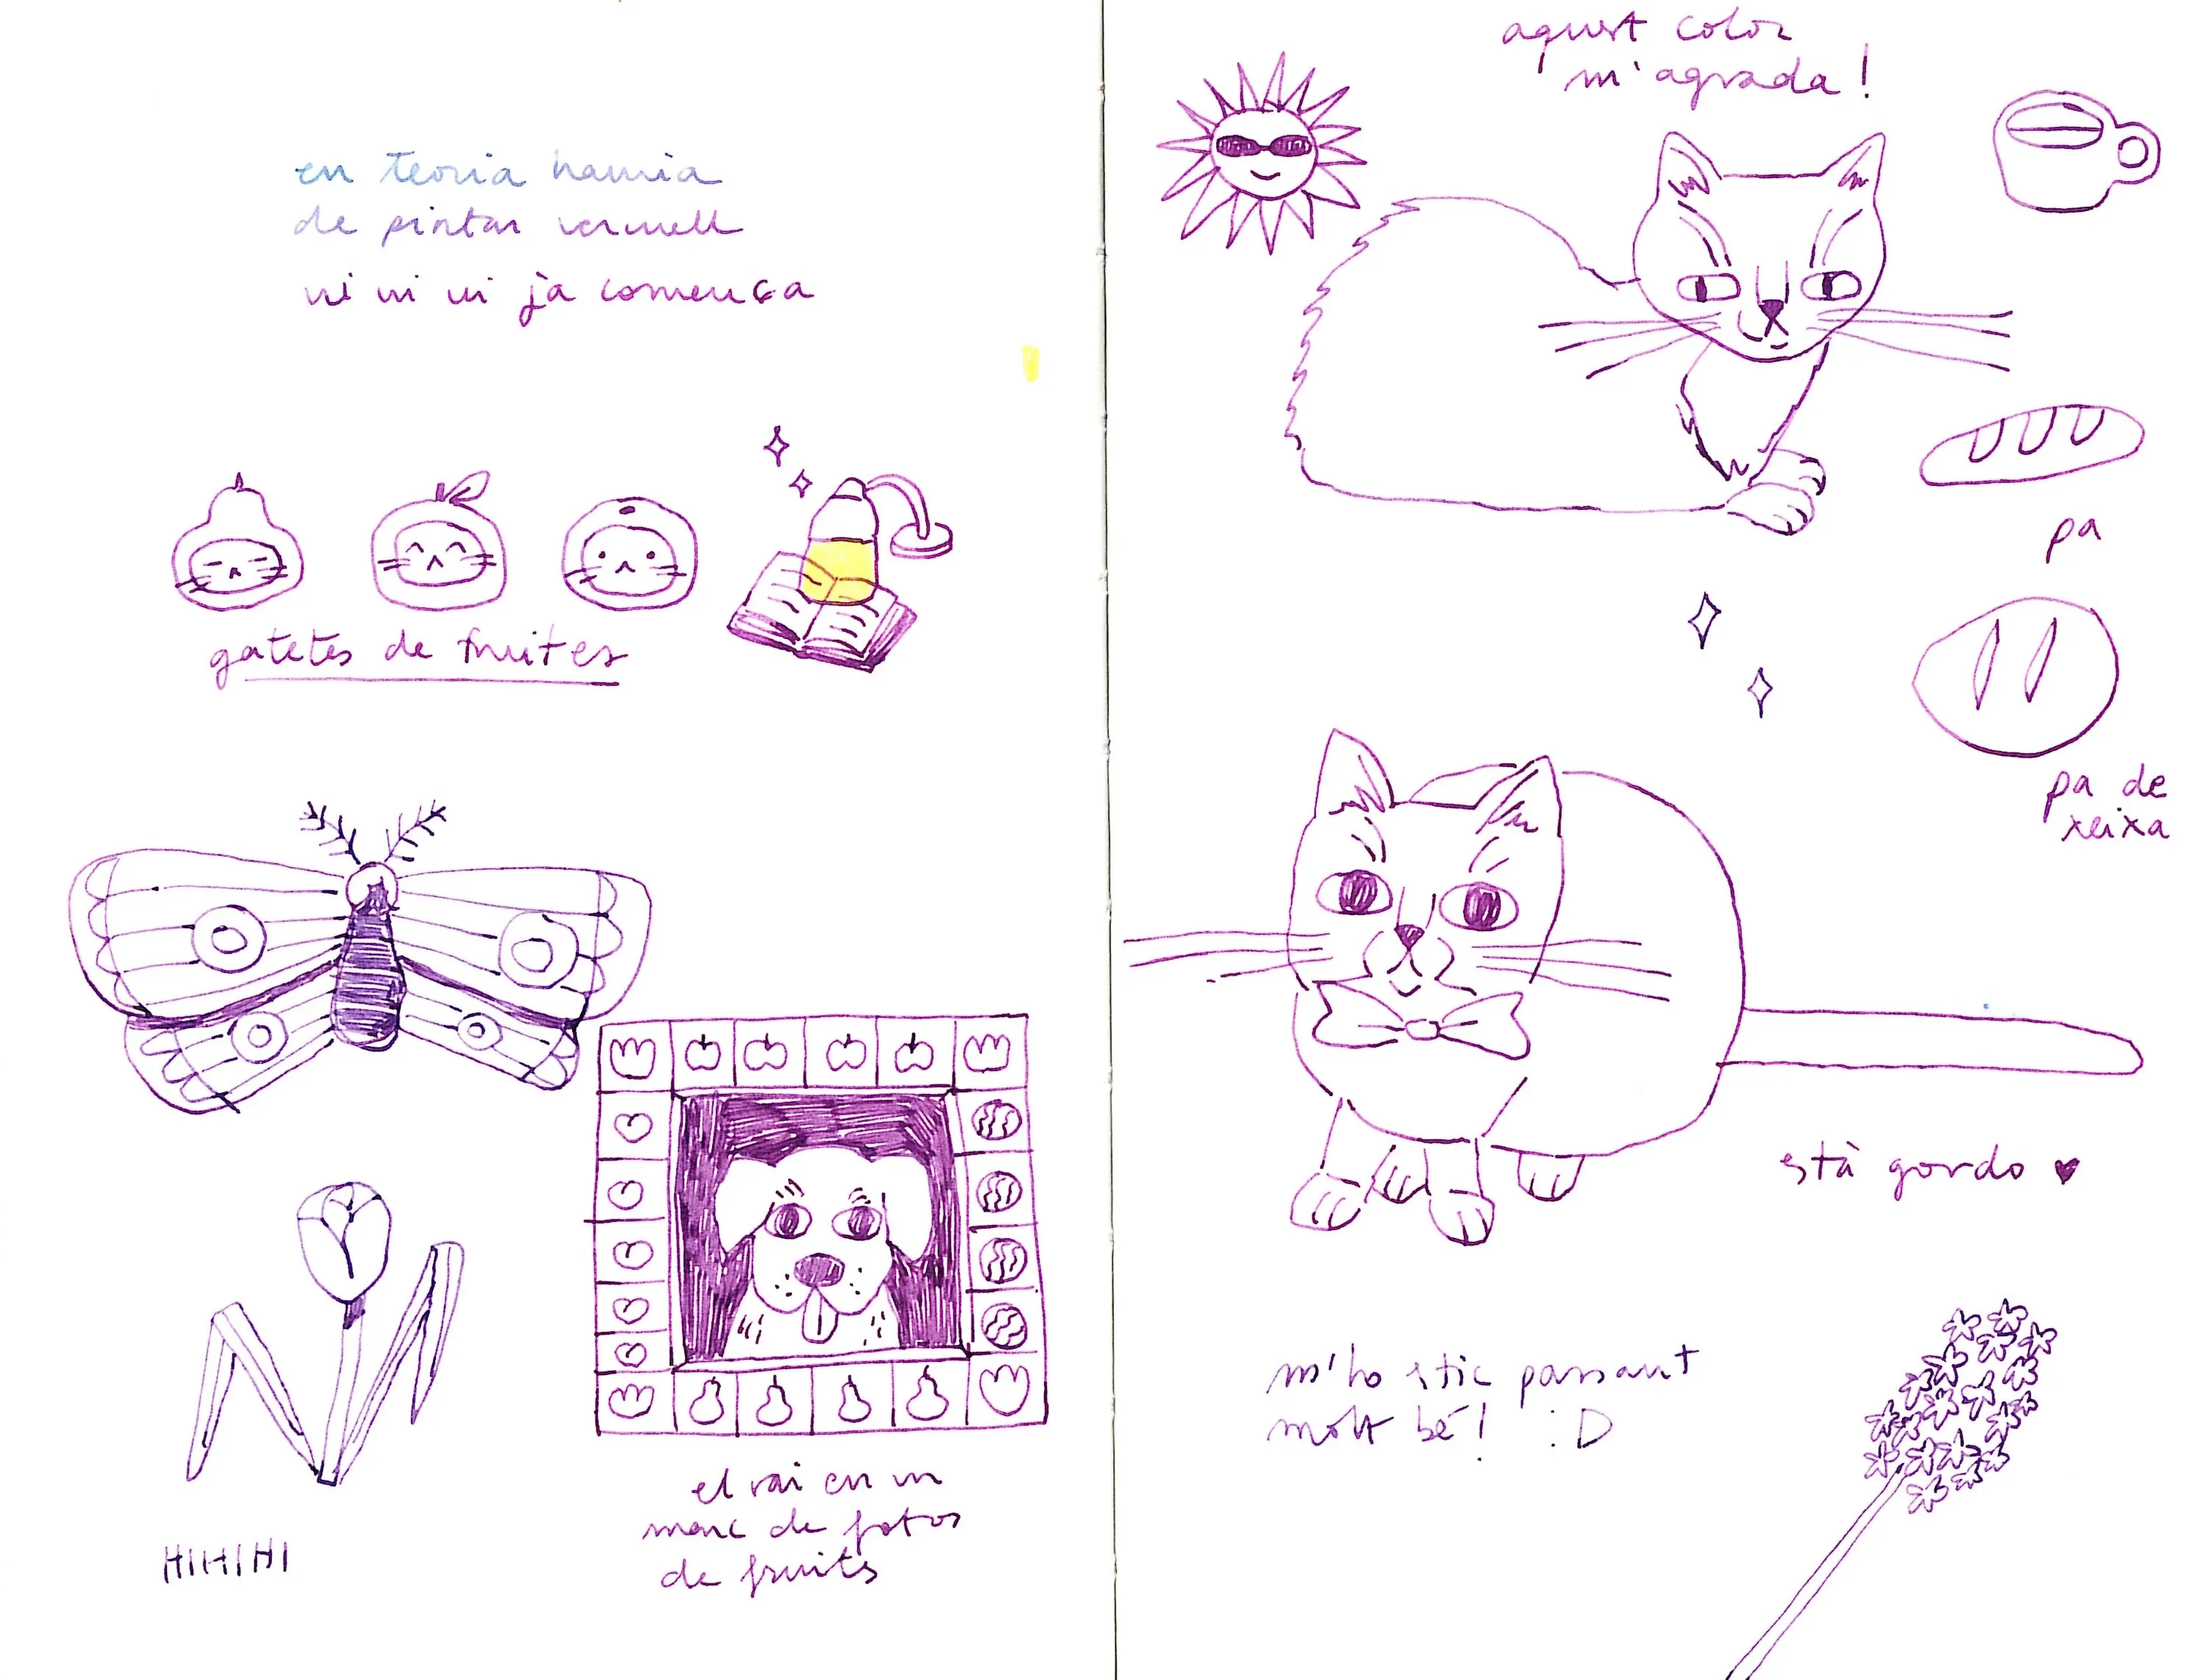 en teoria hauria
de pintar vermell
ui ui ui ja comença
gatetes de fruites
HIHIHI
el rai en un
marc de fotos
de fruits
aquest color
m'agrada!
pa
pa de
xeixa
està gordo ♥
m'ho estic passant
molt bé! :D